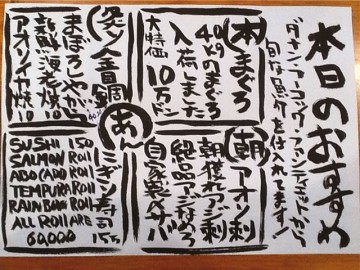 本日のおすすめ
ダナン、ファンコック、ファンティエットから
旬な魚介を仕入れてます!
本まぐろ
40kgのまぐろ
入荷しました
大特価 10万ドン
朝アオリ刺
朝獲れアジ刺
絶品アジなめろ
自家製〆サバ
炙り金目鯛
まぼろしやがら
新鮮海老焼10
アオリイカ焼10
あん
にぎり寿司
15万
SUSHI 150
SALMON Roll
ABOCADO Roll
TEMPURA Roll
RAINBOW Roll
ALL Roll ARE
60,000